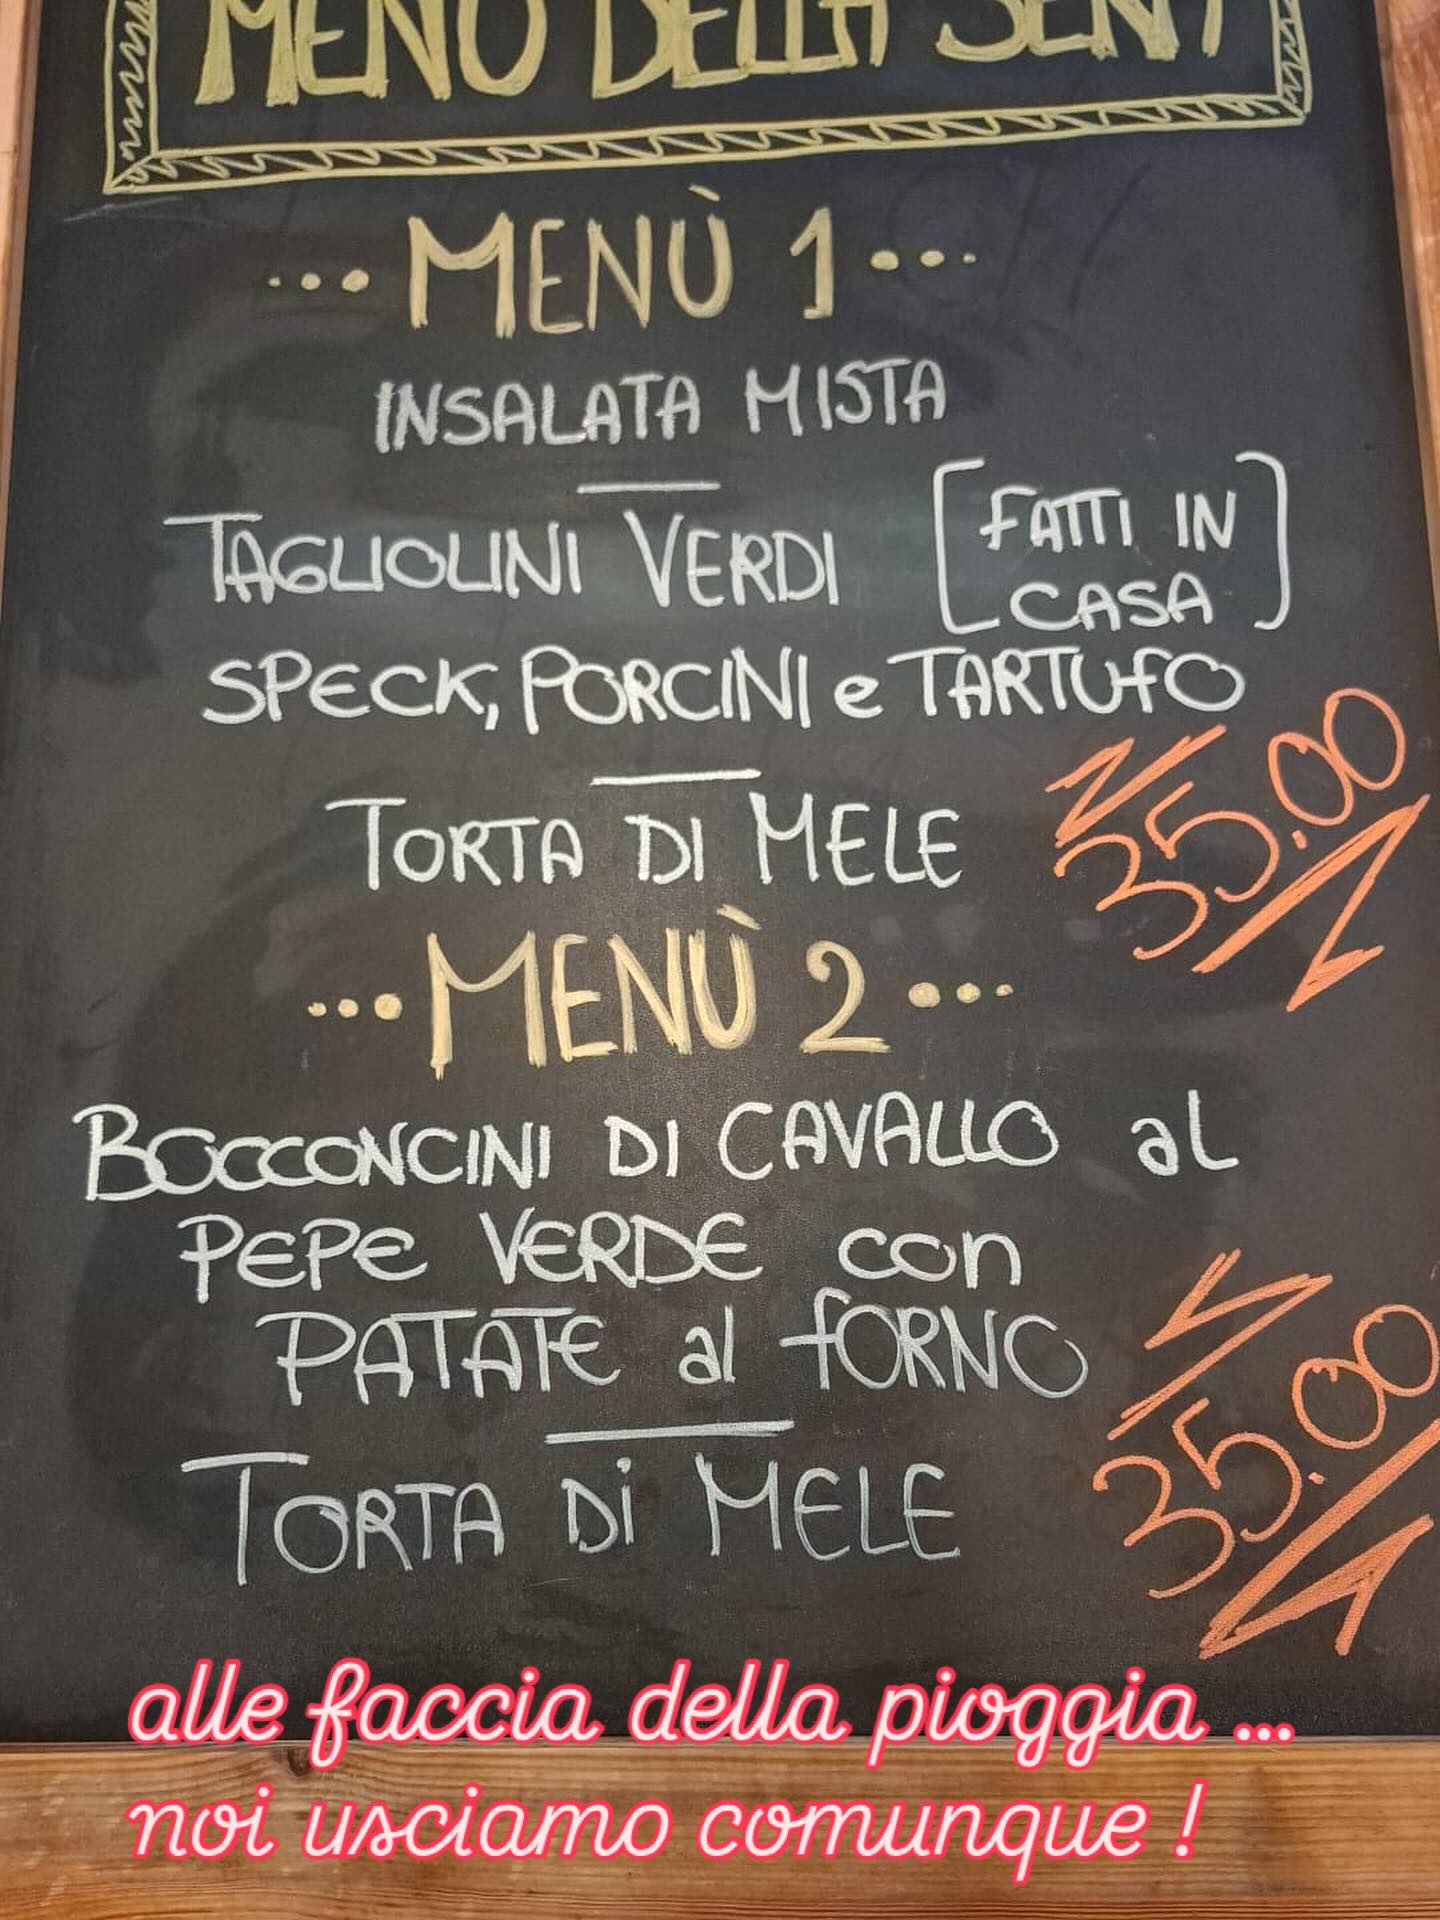 MENÙ DELLA
MENÙ 1
INSALATA MISTA
TAGLIOLINI VERDI [FATTI IN
CASA]
SPECK, PORCINI e TARTUFO
35.00
TORTA DI MELE
MENÙ 2
BOCCONCINI DI CAVALLO al
PEPE VERDE con
PATATE al FORNO
35.00
TORTA Di MELE
alle faccia della pioggia ...
noi usciamo comunque !